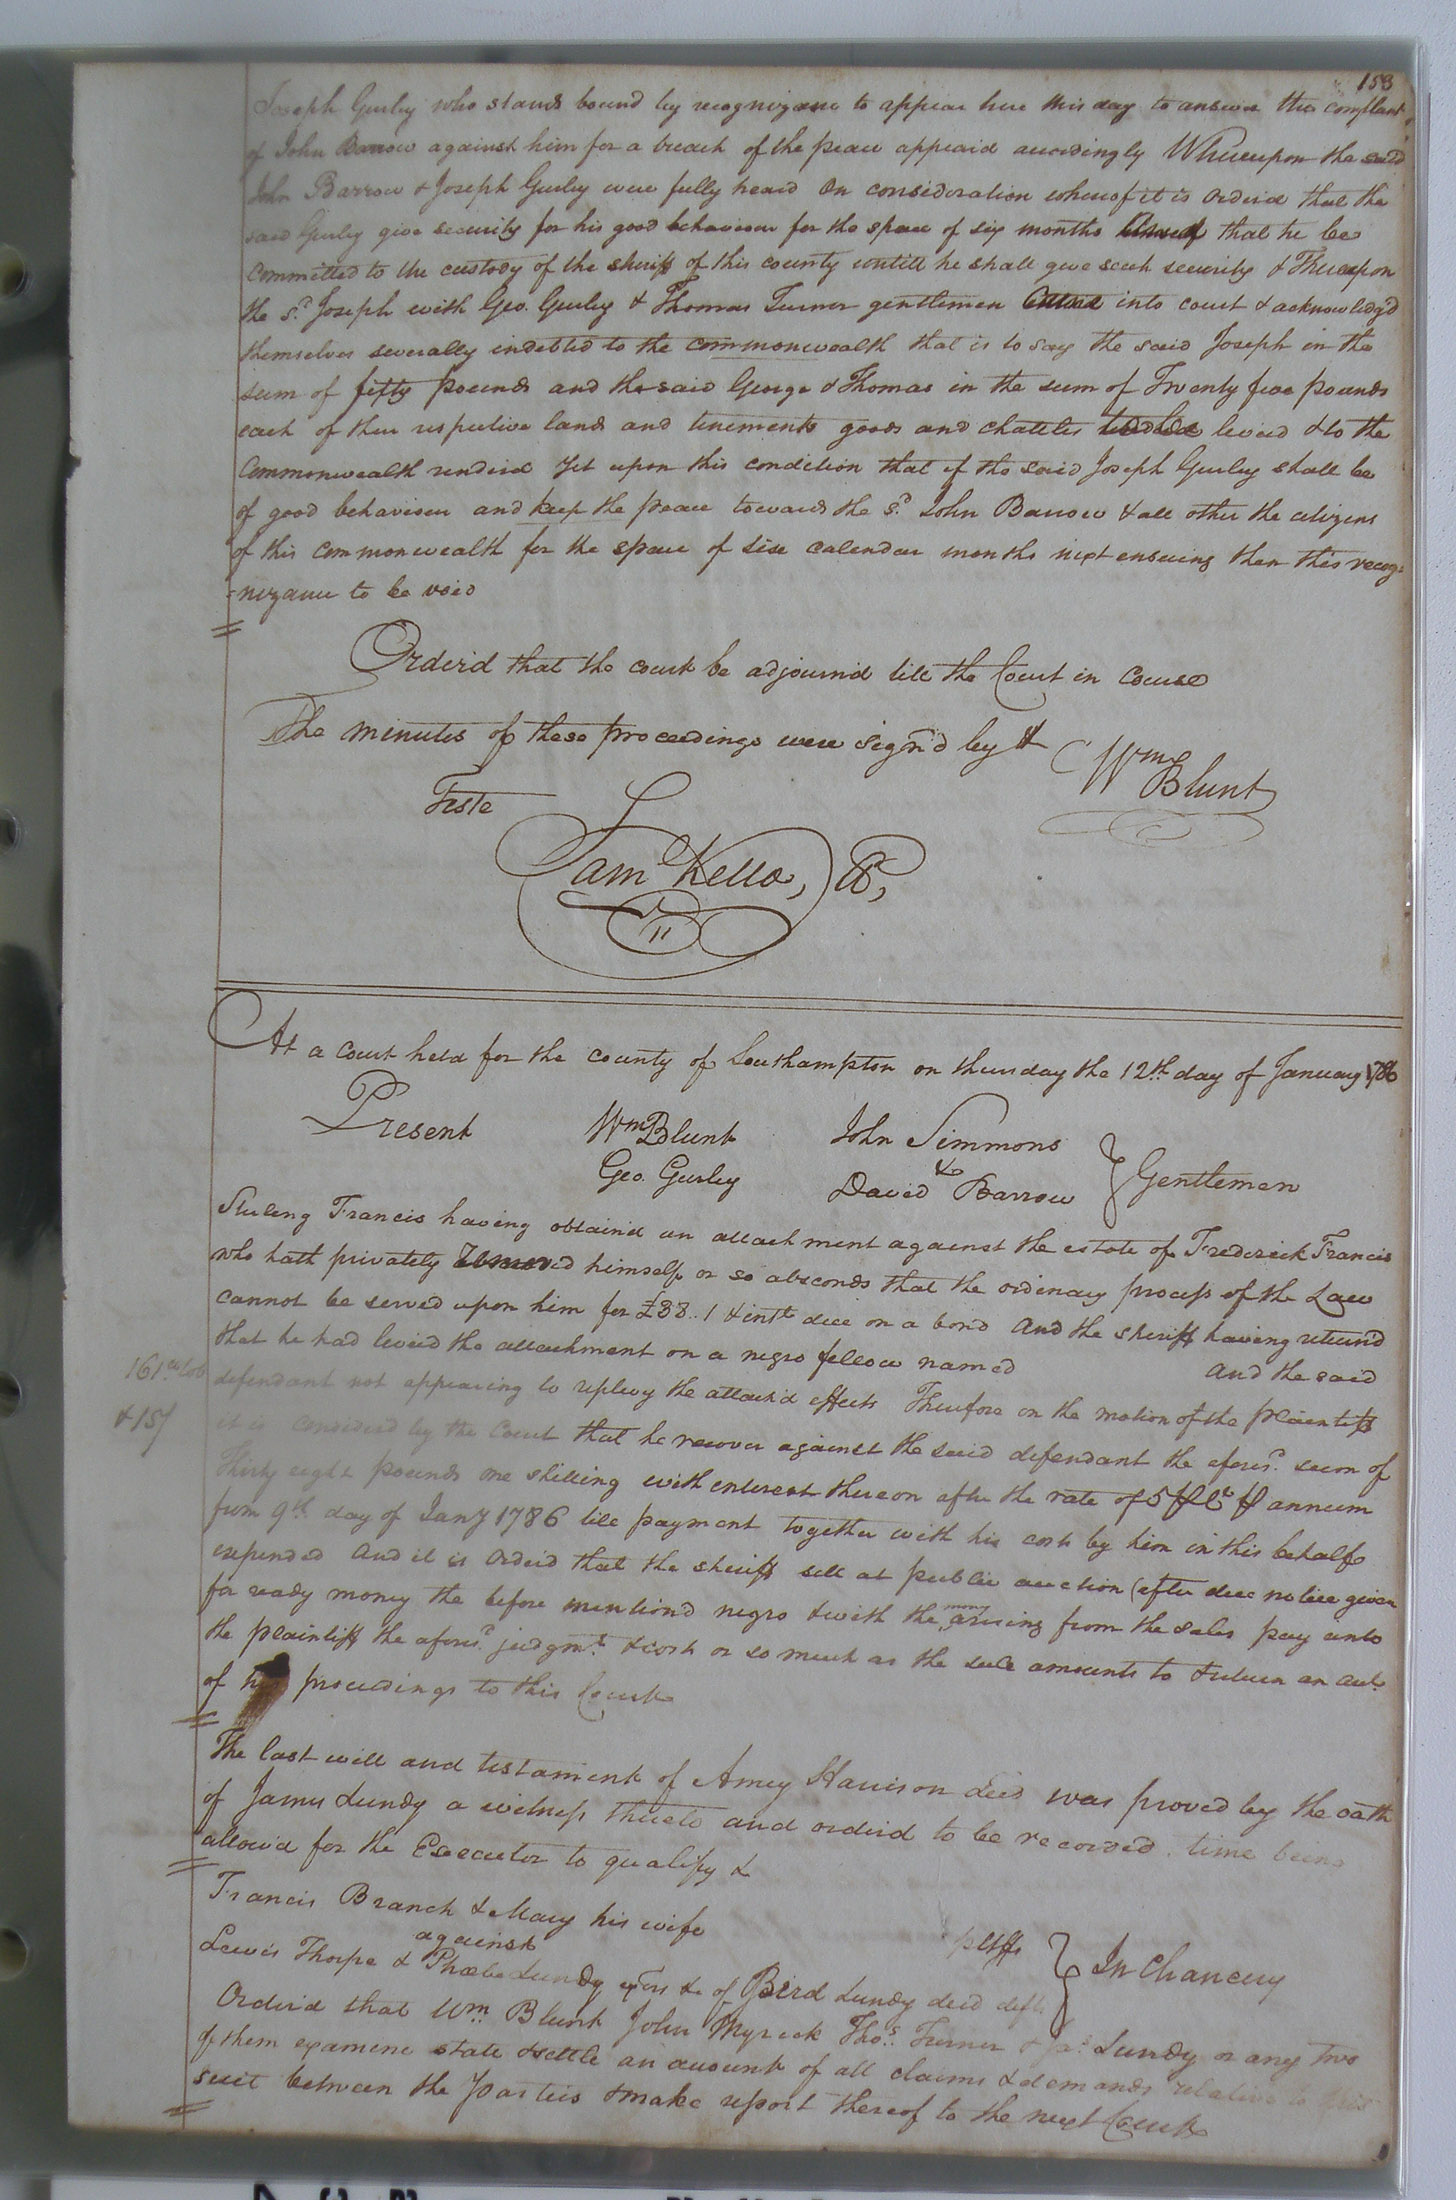 153
Joseph Gurley who stands bound by recognizance to appear here this day to answer the complaint
of John Barrow against him for a breach of the peace appeard accordingly Whereupon the said
John Barrow & Joseph Gurley were fully heard On consideration whereof it is Orderd that the
said Gurley give security for his good behaviour for the space of six months that he be
Committed to the custody of the sheriff of this county untill he shall give such security & Thereupon
the sd. Joseph with Geo. Gurley & Thomas Turner gentlemen Came into court & acknowledg'd
themselves severally indebted to the commonwealth that is to say the said Joseph in the
sum of fifty pounds and the said George & Thomas in the sum of Twenty five pounds
each of their respective lands and tenements goods and chattles to be levied & to the
Commonwealth renderd Yet upon this condition that if the said Joseph Gurley shall be
of good behaviour and keep the peace towards the sd. John Barrow & all other the citizens
of this commonwealth for the space of six calendar months next ensuing then this recog=
-nizance to be void
Orderd that the court be adjournd till the Court in Course
The minutes of these proceedings were sign'd by
Wm Blunt
Teste
Sam Kello, Cl,
At a Court held for the county of Southampton on thursday the 12th day of January 1786
Present Wm Blunt John Simmons
Geo. Gurley & David Barrow } Gentlemen
Sterling Francis having obtaind an attachment against the estate of Frederick Francis
who hath privately Removed himself or so absconds that the ordinary process of the Law
cannot be served upon him for £38..1 & intt due on a bond And the sheriff having returnd
that he had levied the attachment on a negro fellow named and the said
defendant not appearing to replevy the attach'd effects Therefore on the motion of the plaintiff
161
& 157
it is considerd by the Court that he recover against the said defendant the aforesd. sum of
thirty eight pounds one shilling with interest thereon after the rate of 5 PCt P annum
from 9th day of Jany 1786 till payment together with his costs by him in this behalf
expended And it is Orderd that the sheriff sell at public auction (after due notice given
for ready money the before mentiond negro & with the money arising from the sales pay unto
the plaintiff the aforesd. judgmt. & costs or so much as the sale amounts to & return an acct.
of his proceedings to this Court
The last will and testament of Amey Harrison decd was proved by the oath
of James Lundy a witness thereto and orderd to be recorded. time being
allow'd for the Executor to qualify &
Francis Branch & Mary his wife pltffs
against } In Chancery
Lewis Thorpe & Phœbe Lundy exors &c of Bird Lundy decd defts
Orderd that Wm. Blunt John Myrick Thos. Turner & Jas. Lundy or any two
of them examine state & settle an account of all claims & demands relative to this
suit between the Parties & make report thereof to the next Court